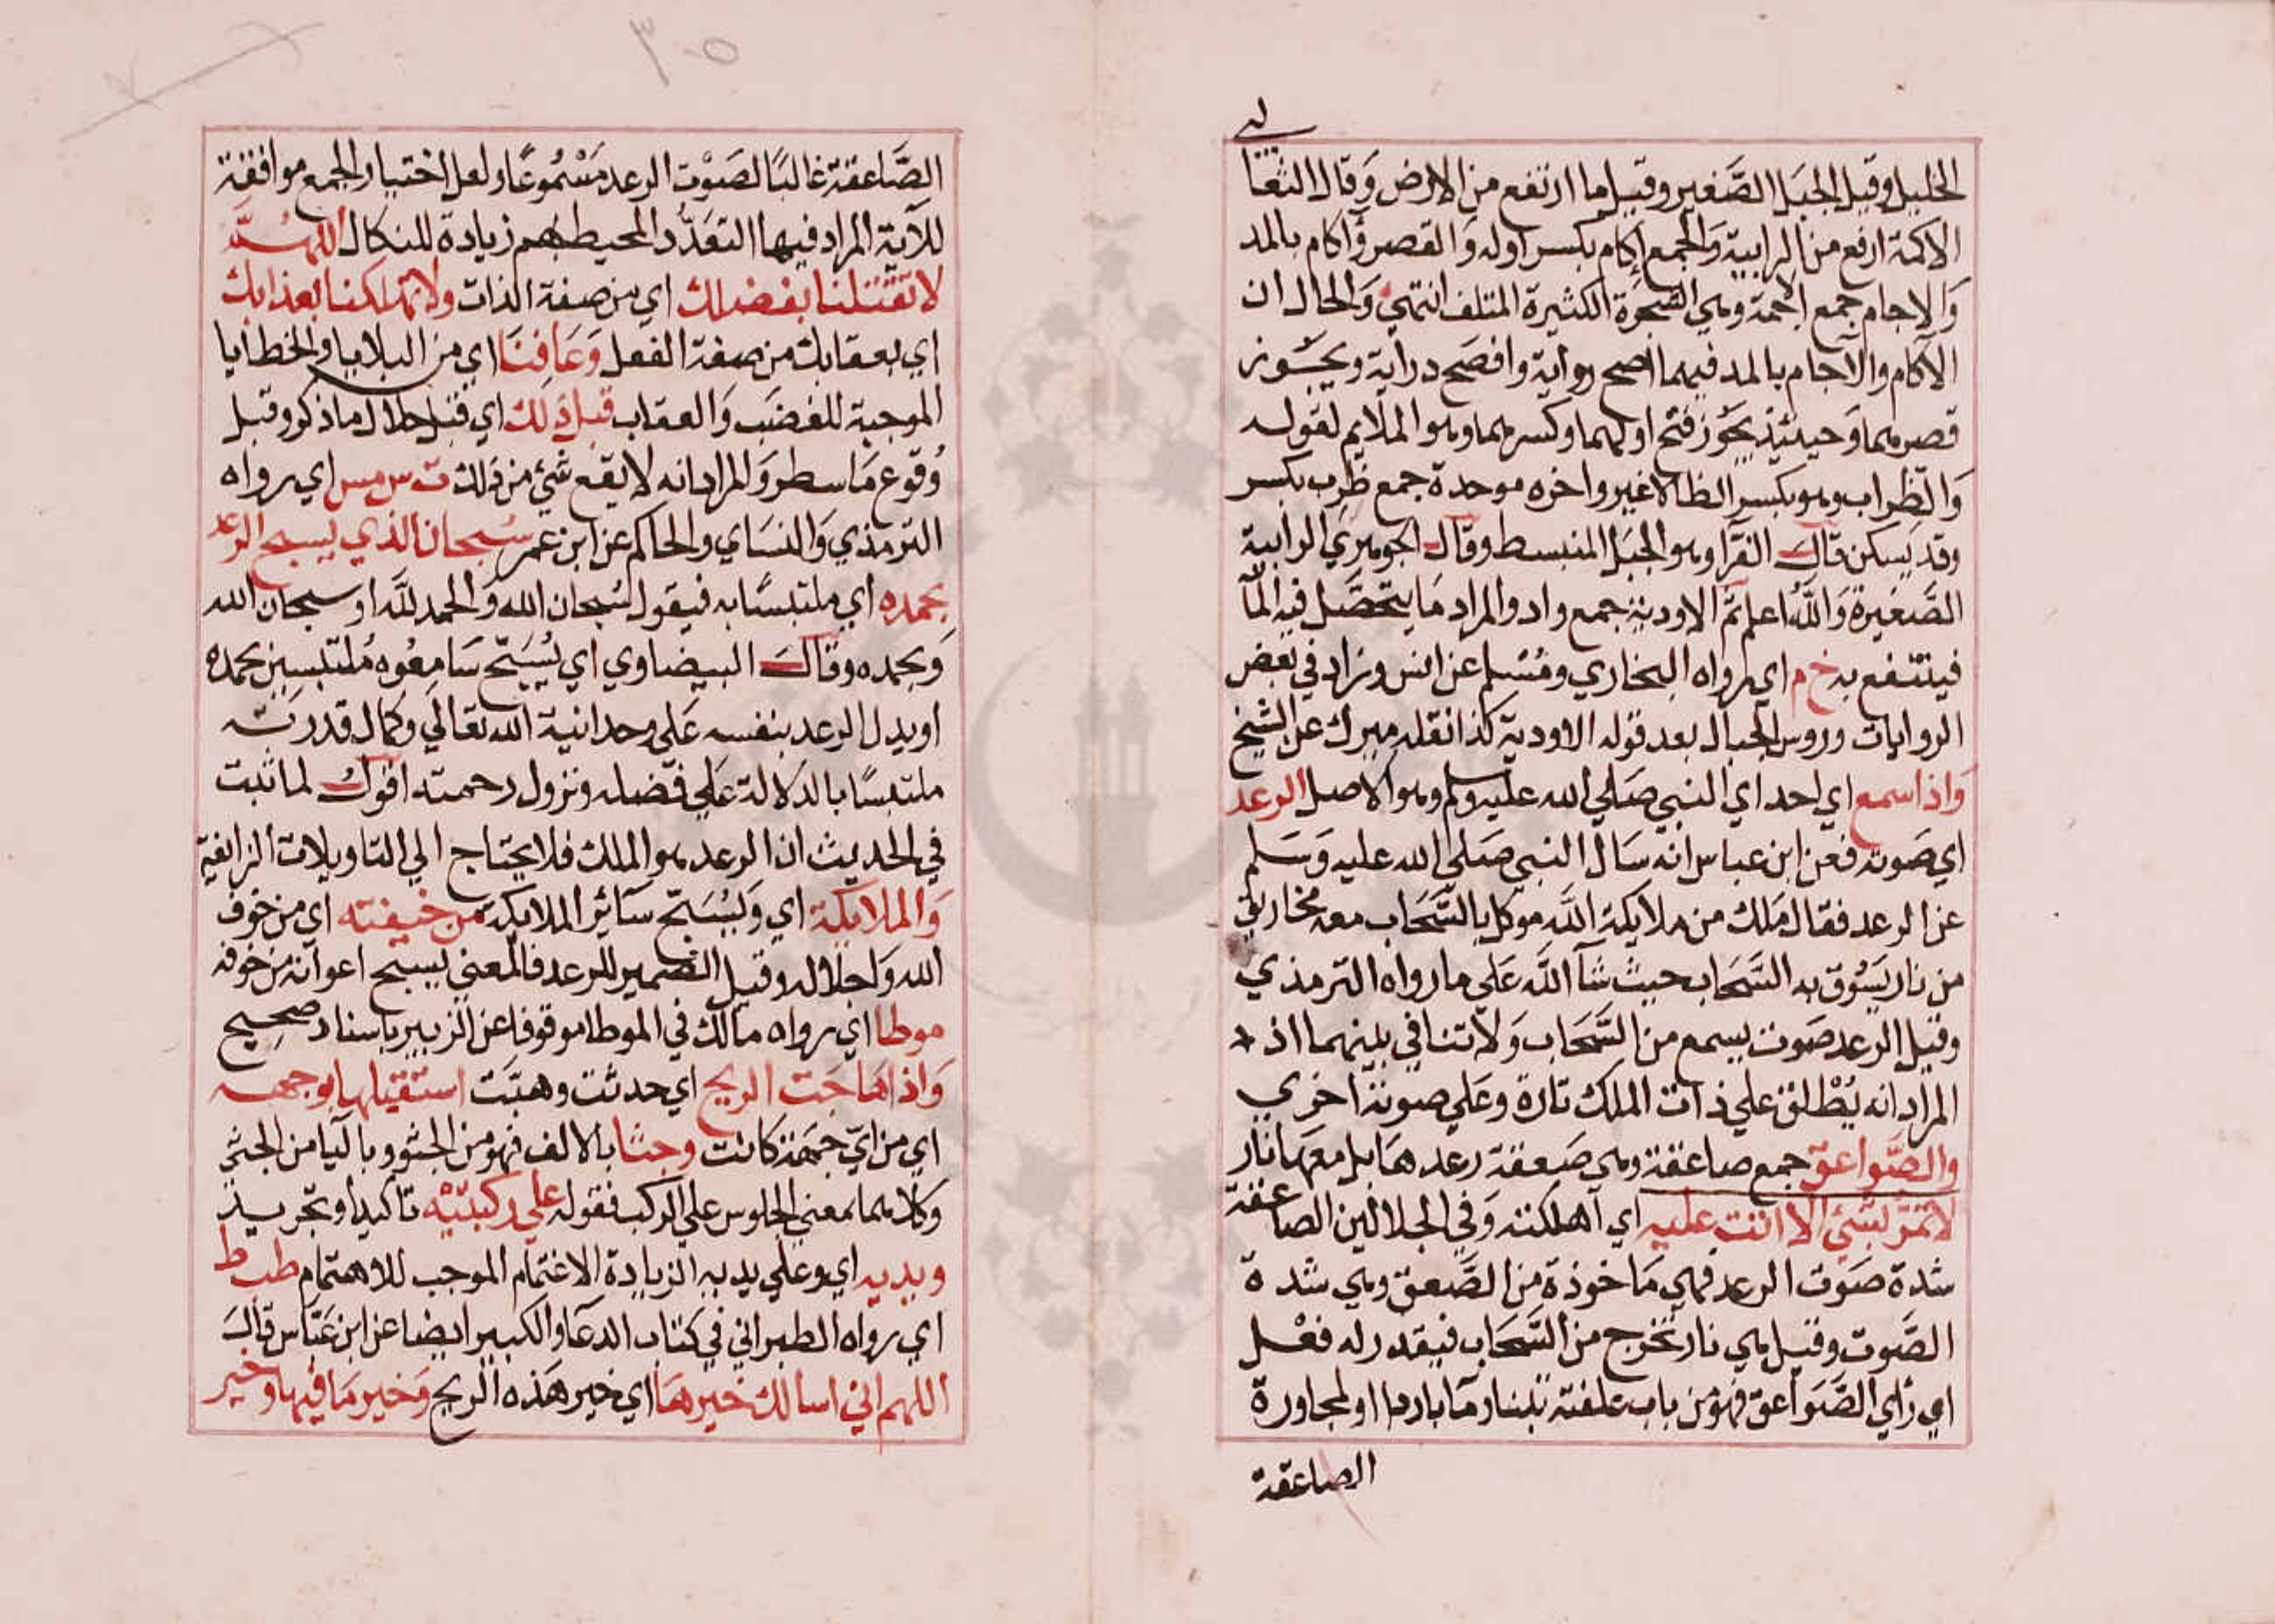 لبي
الخليل وقيل الجبل الصغير وقيل ما ارتفع من الارض وَقال الثعا
الاكمة ارفع من الرابية وَالجمع إكام بكسر اوله وَالقصر وآكام بالمد
وَالاجام جمع اجمة وهي الشجرة الكثيرة الملتف انتهي وَالحال ان
الآكام والآجام بالمد فيهما اصح رواية وافصَح دراية ويجَوز
قصرهما وَحينئِذ يجَوز فتح اولهما وكسرهما وهو الملايم لقوله
وَالظِراب وهو بكسر الظا لاغير واخره موحدة جمع ظرِب بكسر
وقد يَسكن قال الفرا وهو الجبَل المنبسط وقال الجوهري الرابية
الصَّغيرة وَاللّه اعلم ثم الاودية جمع واد والمراد مَا يتحصَّل فيه المآ
فينتفع به خ م اي رواه البخاري ومُسْلم عن انس وزاد في بعَض
الروايات وروس الجبال بعد قوله الاودية كذا نقله ميرك عن الشيخ
وَاذا سمع اي احد اي النبي صَلي الله عليه وسلم وهو الاصل الرعد
اي صَوته فعن ابن عباس انه سَال النبي صَلي الله عليه وَسَلم
عن الرعد فقال مَلك من ملايكة اللّه موكل بالسَّحَاب معه مخاريق
من نار يَسُوق به السَّحَاب حيث شآ اللَّه عَلي ما رواه الترمذي
وقيل الرعد صَوت يسمع من السَّحَاب وَلا تنافي بينهما اذ
المراد انه يُطْلق علي ذات الملك تارة وعَلي صوته اخري
والصَّواعق جمع صاعقة وهي صَعقة رعد هَا بل معَها نار
لا تمرّ بشئ الا اتت عليه اي اهلكته وَفي الجلالين الصاعقة
شدة صَوت الرعد فهي مَاخوذة من الصَّعق وهي شدة
الصَّوت وقيل هي نار تخرج من السَّحَاب فيقدر له فعْل
اي رَاي الصَّوَاعق فهو من باب علفته تبنا ومآ باردا او لمجاورة
الصاعقة
٣٠٥
الصَّاعقة غالبًا لصَوْت الرعد مَسْمُوعًا ولعل اختيار الجمع موافقة
للآية المراد فيها التعَدُّد المحيط بهم زيادة للنكال اللهُمَّ
لا تقتلنا بغضبك اي من صفة الذات ولا تهلكنا بعذابك
اي بعقابك من صفة الفعل وَعَافِنَا اي من البلايا والخطايا
الموجبة للغضَب وَالعقاب قبل ذلك اي قبل حلال ما ذكر وقبل
وُقوع مَا سطر وَالمراد انه لا يقع شئ من ذلك ت س مس اي رواه
الترمذي وَالنسَاي والحاكم عن ابن عمر سُبحان الذي يسبح الرعد
بحمده اي ملتبسًا به فيقول سُبحان الله وَالحمد للَّه او سبحان الله
وَبحمده وقال البيضاوي اي يُسَبّح سَامِعُوه مُلتبسين بحمده
او يدل الرعد بنفسه عَلي وحدانية الله تعَالي وكمال قدرته
ملتبسًا بالدلالة عَلي فضله ونزول رحمته اقول لما ثبت
في الحديث ان الرعد هو الملك فلا يحتاج الي التاويلات الزائفة
وَالملايكة اي وَيُسَبّح سَائر الملايكة من خيفته اي من خوف
الله وَاجلاله وقيل الضمير للرعد فالمعني يسبح اعوانه من خوفه
موطا اي رواه مالك في الموطا موقوفا عن الزبير باسناد صحيح
وَاذا هَاجَت الريح اي حدثت وهبَّت استقبلها بوجهه
اي من ايّ جهة كانت وجثا بالالف فهو من الجثو وبالآيا من الجثي
وكلاهما بمعني الجلوس علي الركب فقوله علي ركبتيْه تاكيد او تجريد
وبديه اي وعلي يديه لزيادة الاغتمام الموجب للاهتمام طب ط
اي رواه الطبراني في كتاب الدعآ والكبير ايضا عن ابن عَبّاس قالَ
اللهم اني اسالك خيرهَا اي خير هَذه الريح وَخير مَا فيها وخير